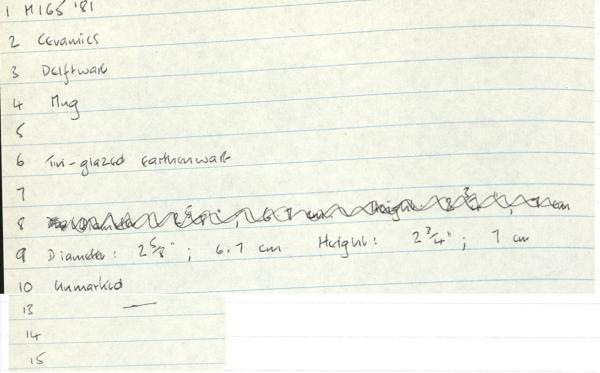 1 M165 '81
2 Ceramics
3 Delftware
4 Mug
5
6 Tin-glazed earthenware
7
8 Diameter cm Height cm
9 Diameter: 2 5/8"; 6.7 cm Height: 2 3/4"; 7 cm
10 Unmarked
13 —
14
15